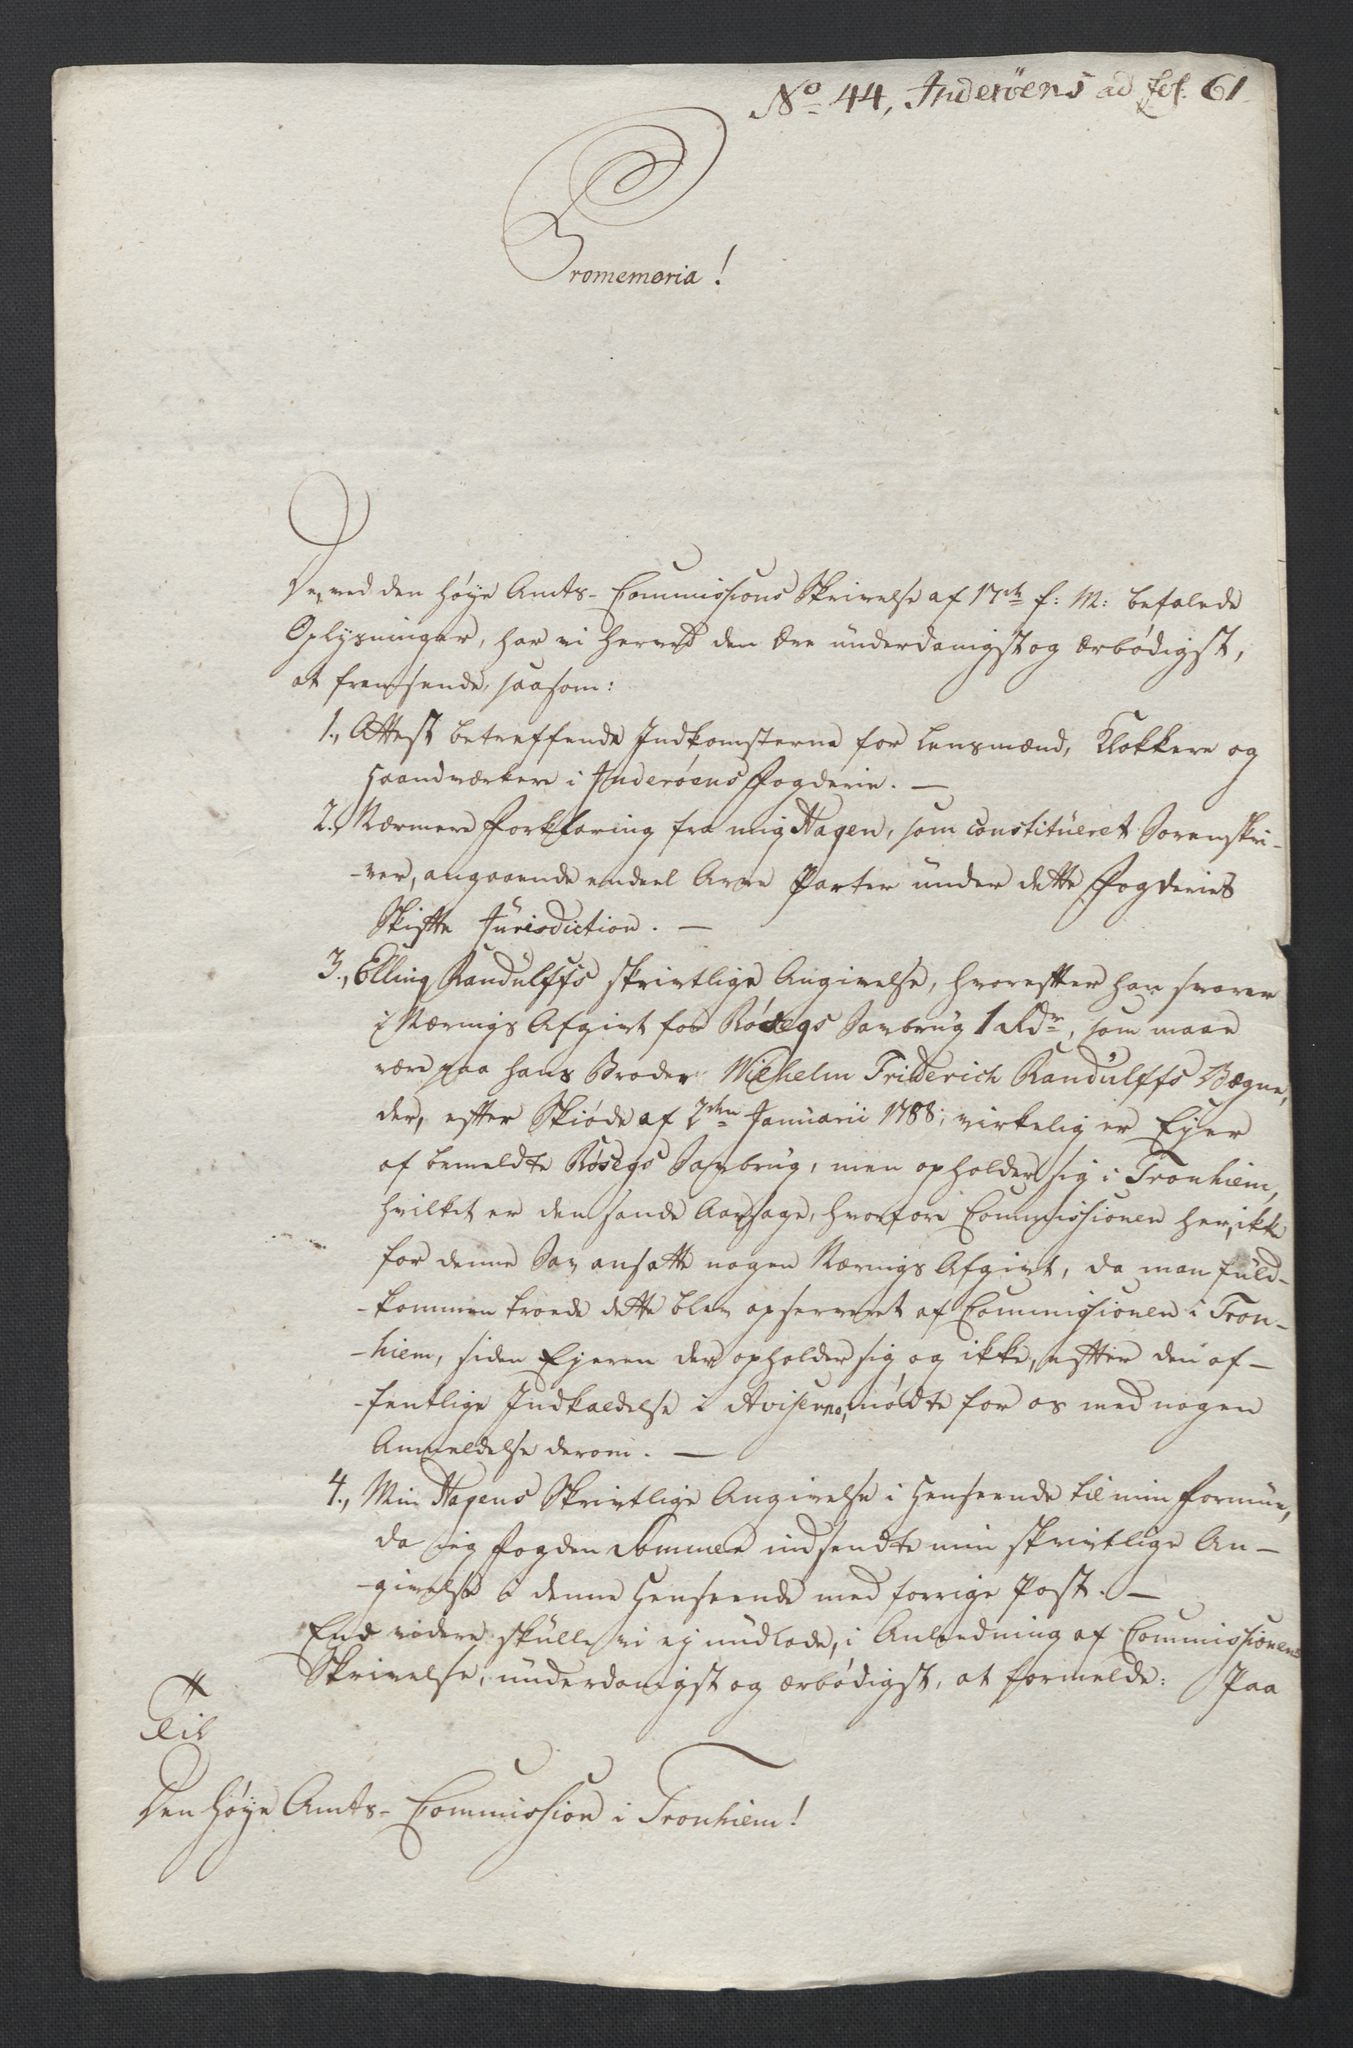 No 44, Inderöens ad fol. 61
Promemoria!
De, ved den høye Amts-Commissions Skrivelse af 17de f: M: befalede
Oplysninger, har vi herved den Ære underdanigst og ærbødigst,
at fremsende, saasom:
1., Attest betreffende Indkomsterne for Lensmænd, Klokkere og
Haandværkere i Inderöens Fogderie. —
2., Nærmere Forklaring fra mig Hagen, som constitueret Sorenskri-
-ver, angaaende endeel Arve Parter under dette Fogderies
Skifte Jurisdiction. —
3., Elling Randulffs skrivtlige Angivelse, hvorefter han svarer
i Nærings Afgivt for Røsegs Saubrug 1 Rdr, som maae
være paa hans Broder Wilhelm Friderich Randulffs Vegne,
der, efter Skiøde af 2den Januarii 1788, virkelig er Ejer
af bemeldte Røsegs Saubrug, men opholder sig i Tronhiem,
hvilket er den sande Aarsage, hvorfore Commissionen her, ikke
for denne Sav ansatte nogen Nærings Afgivt, da man fuld-
-kommen troede dette blev opserveret af Commissionen i Tron-
-hiem, siden Ejeren der opholder sig og ikke, efter den of-
-fentlige Indkaldelse i Aviserne, mødte for os med nogen
Anmeldelse derom. —
4., Min Hagens Skrivtlige Angivelse i Henseende til min Formue,
da jeg Fogden Sommer indsendte min skrivtlige An-
-givelse i denne Henseende med forrige Post. —
End videre skulle vi ej undlade, i Anledning af Commissionens
Skrivelse, underdanigst og ærbødigst, at formelde: Paa
Til
Den høye Amts-Commission i Tronhiem!